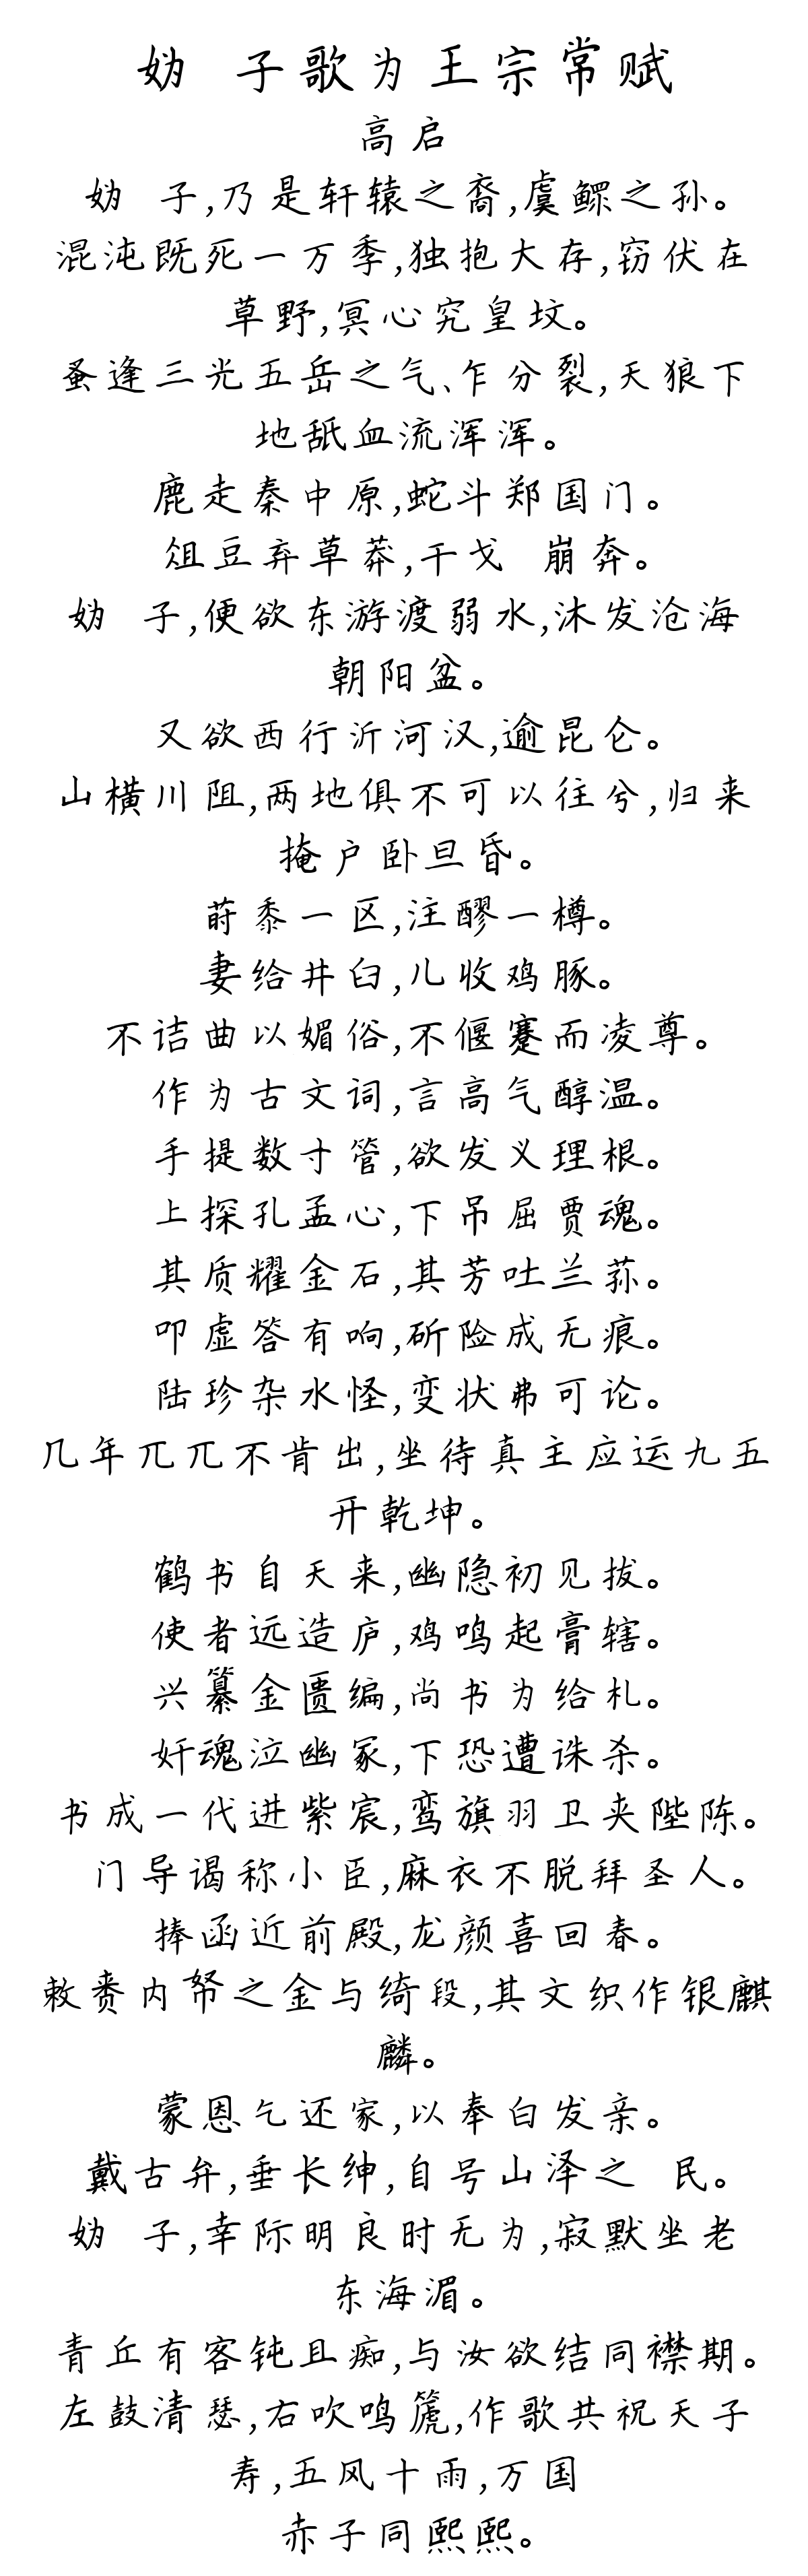 妫 子歌为王宗常赋
高启
妫 子,乃是轩辕之裔,虞鳏之孙。
混沌既死一万季,独抱大存,窃伏在
草野,冥心究皇坟。
蚤逢三光五岳之气、乍分裂,天狼下
地舐血流浑浑。
鹿走秦中原,蛇斗郑国门。
俎豆弃草莽,干戈 崩奔。
妫 子,便欲东游渡弱水,沐发沧海
朝阳盆。
又欲西行沂河汉,逾昆仑。
山横川阻,两地俱不可以往兮,归来
掩户卧旦昏。
莳黍一区,注醪一樽。
妻给井臼,儿收鸡豚。
不诘曲以媚俗,不偃蹇而凌尊。
作为古文词,言高气醇温。
手提数寸管,欲发义理根。
上探孔孟心,下吊屈贾魂。
其质耀金石,其芳吐兰荪。
叩虚答有响,斫险成无痕。
陆珍杂水怪,变状弗可论。
几年兀兀不肯出,坐待真主应运九五
开乾坤。
鹤书自天来,幽隐初见拔。
使者远造庐,鸡鸣起膏辖。
兴纂金匮编,尚书为给札。
奸魂泣幽冢,下恐遭诛杀。
书成一代进紫宸,鸾旗羽卫夹陛陈。
门导谒称小臣,麻衣不脱拜圣人。
捧函近前殿,龙颜喜回春。
敕赉内帑之金与绮段,其文织作银麒
麟。
蒙恩乞还家,以奉白发亲。
戴古弁,垂长绅,自号山泽之 民。
妫 子,幸际明良时无为,寂默坐老
东海湄。
青丘有客钝且痴,与汝欲结同襟期。
左鼓清瑟,右吹鸣篪,作歌共祝天子
寿,五风十雨,万国
赤子同熙熙。